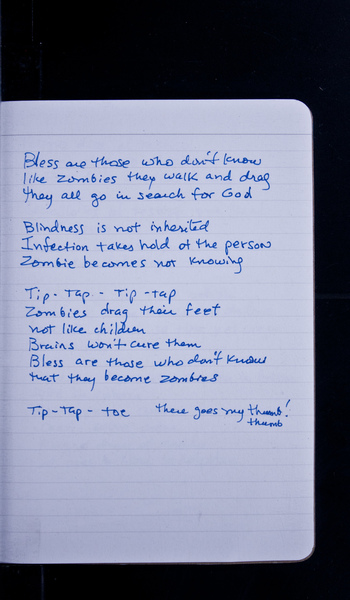 Bless are those who don't know
like zombies they walk and drag
they all go in search for God
Blindness is not inherited
Infection takes hold of the person
Zombie becomes not knowing
Tip-Tap-Tip-tap
Zombies drag their feet
not like children
Brains won't cure them
Bless are those who don't know
that they become zombies
Tip-Tap-toe there goes my thumb!
thumb